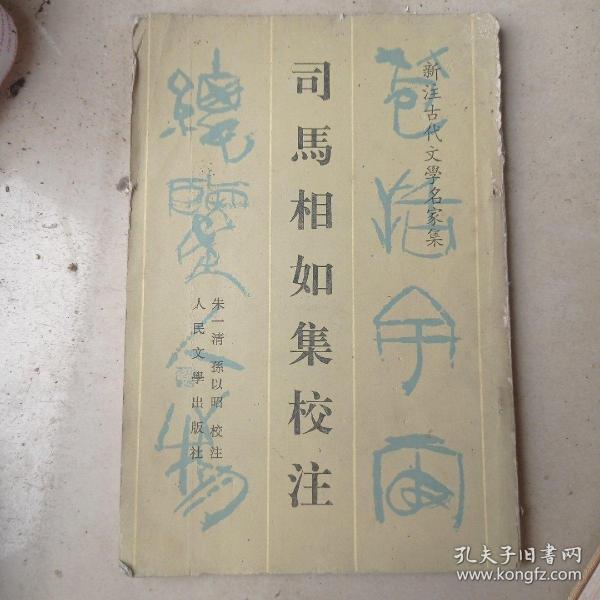 新注古代文學名家集
司馬相如集校注
朱一清 孫以昭 校注
人民文學出版社
孔夫子旧书网
www.kongfz.com